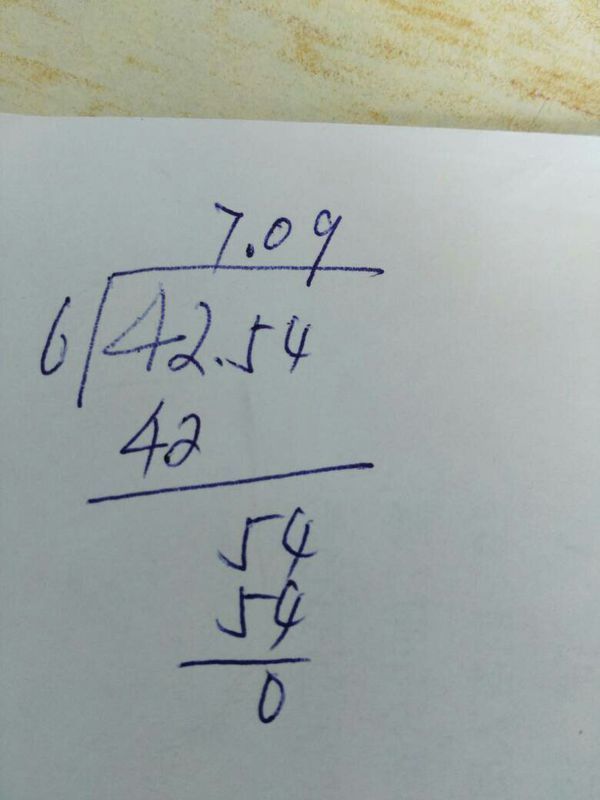 7.09
6 42.54
42
54
54
0